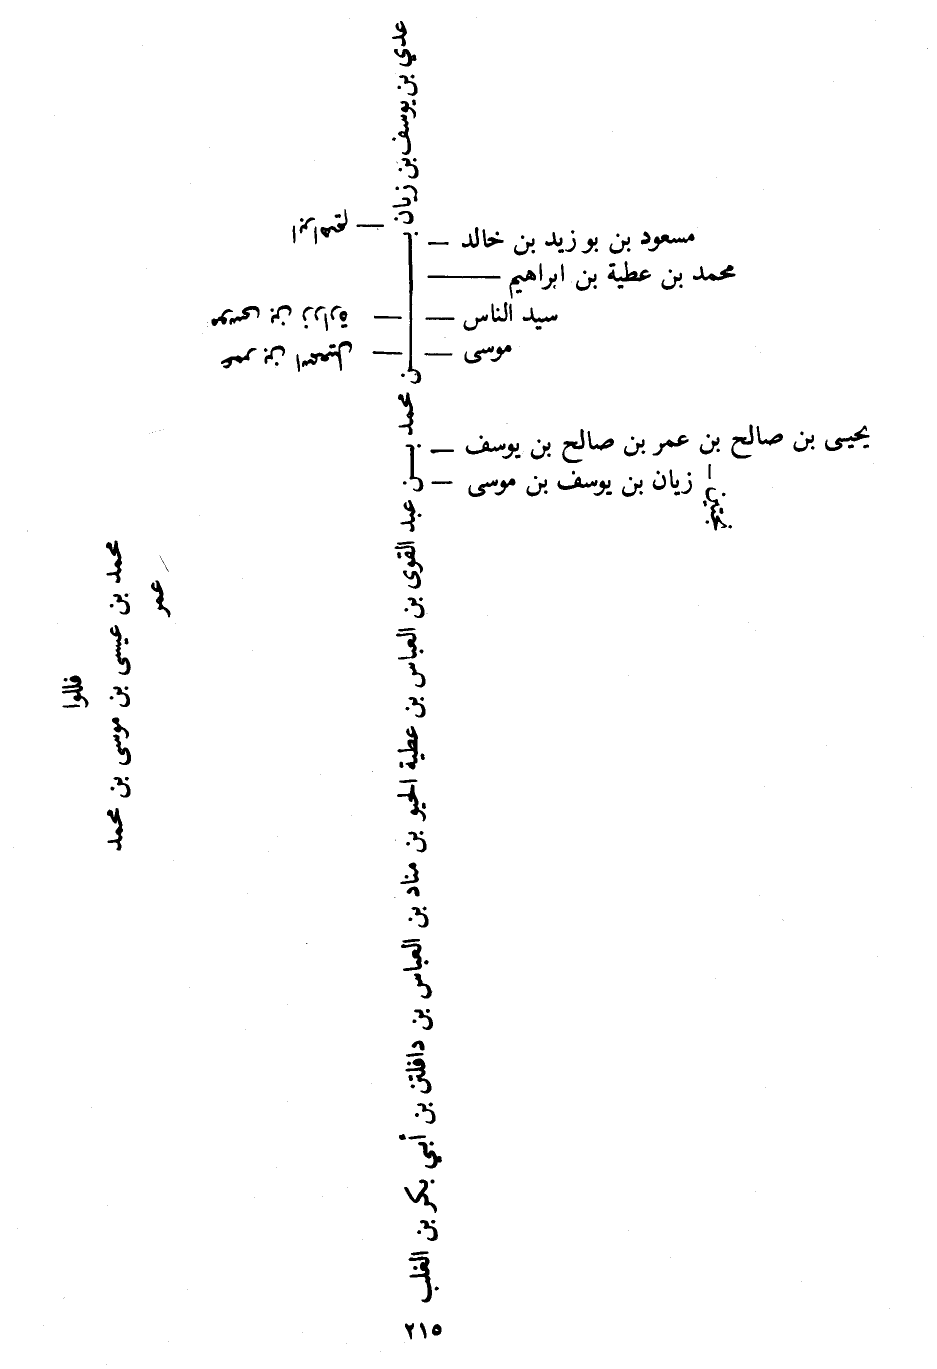 عدي بن يوسف بن زيان بـــن محمد بـــن عبد القوى بن العباس بن عطية الحيو بن مناد بن العباس بن دافلتن بن أبي بكر بن الغلب
مسعود بن بو زيد بن خالد
محمد بن عطية بن ابراهيم
سيد الناس
موسى
يحيى بن صالح بن عمر بن صالح بن يوسف
زيان بن يوسف بن موسى
موسى بن زرارة
عمر بن اسمعيل
محمد بن عيسى بن موسى بن محمد
عمر
فللوا
٢١٥